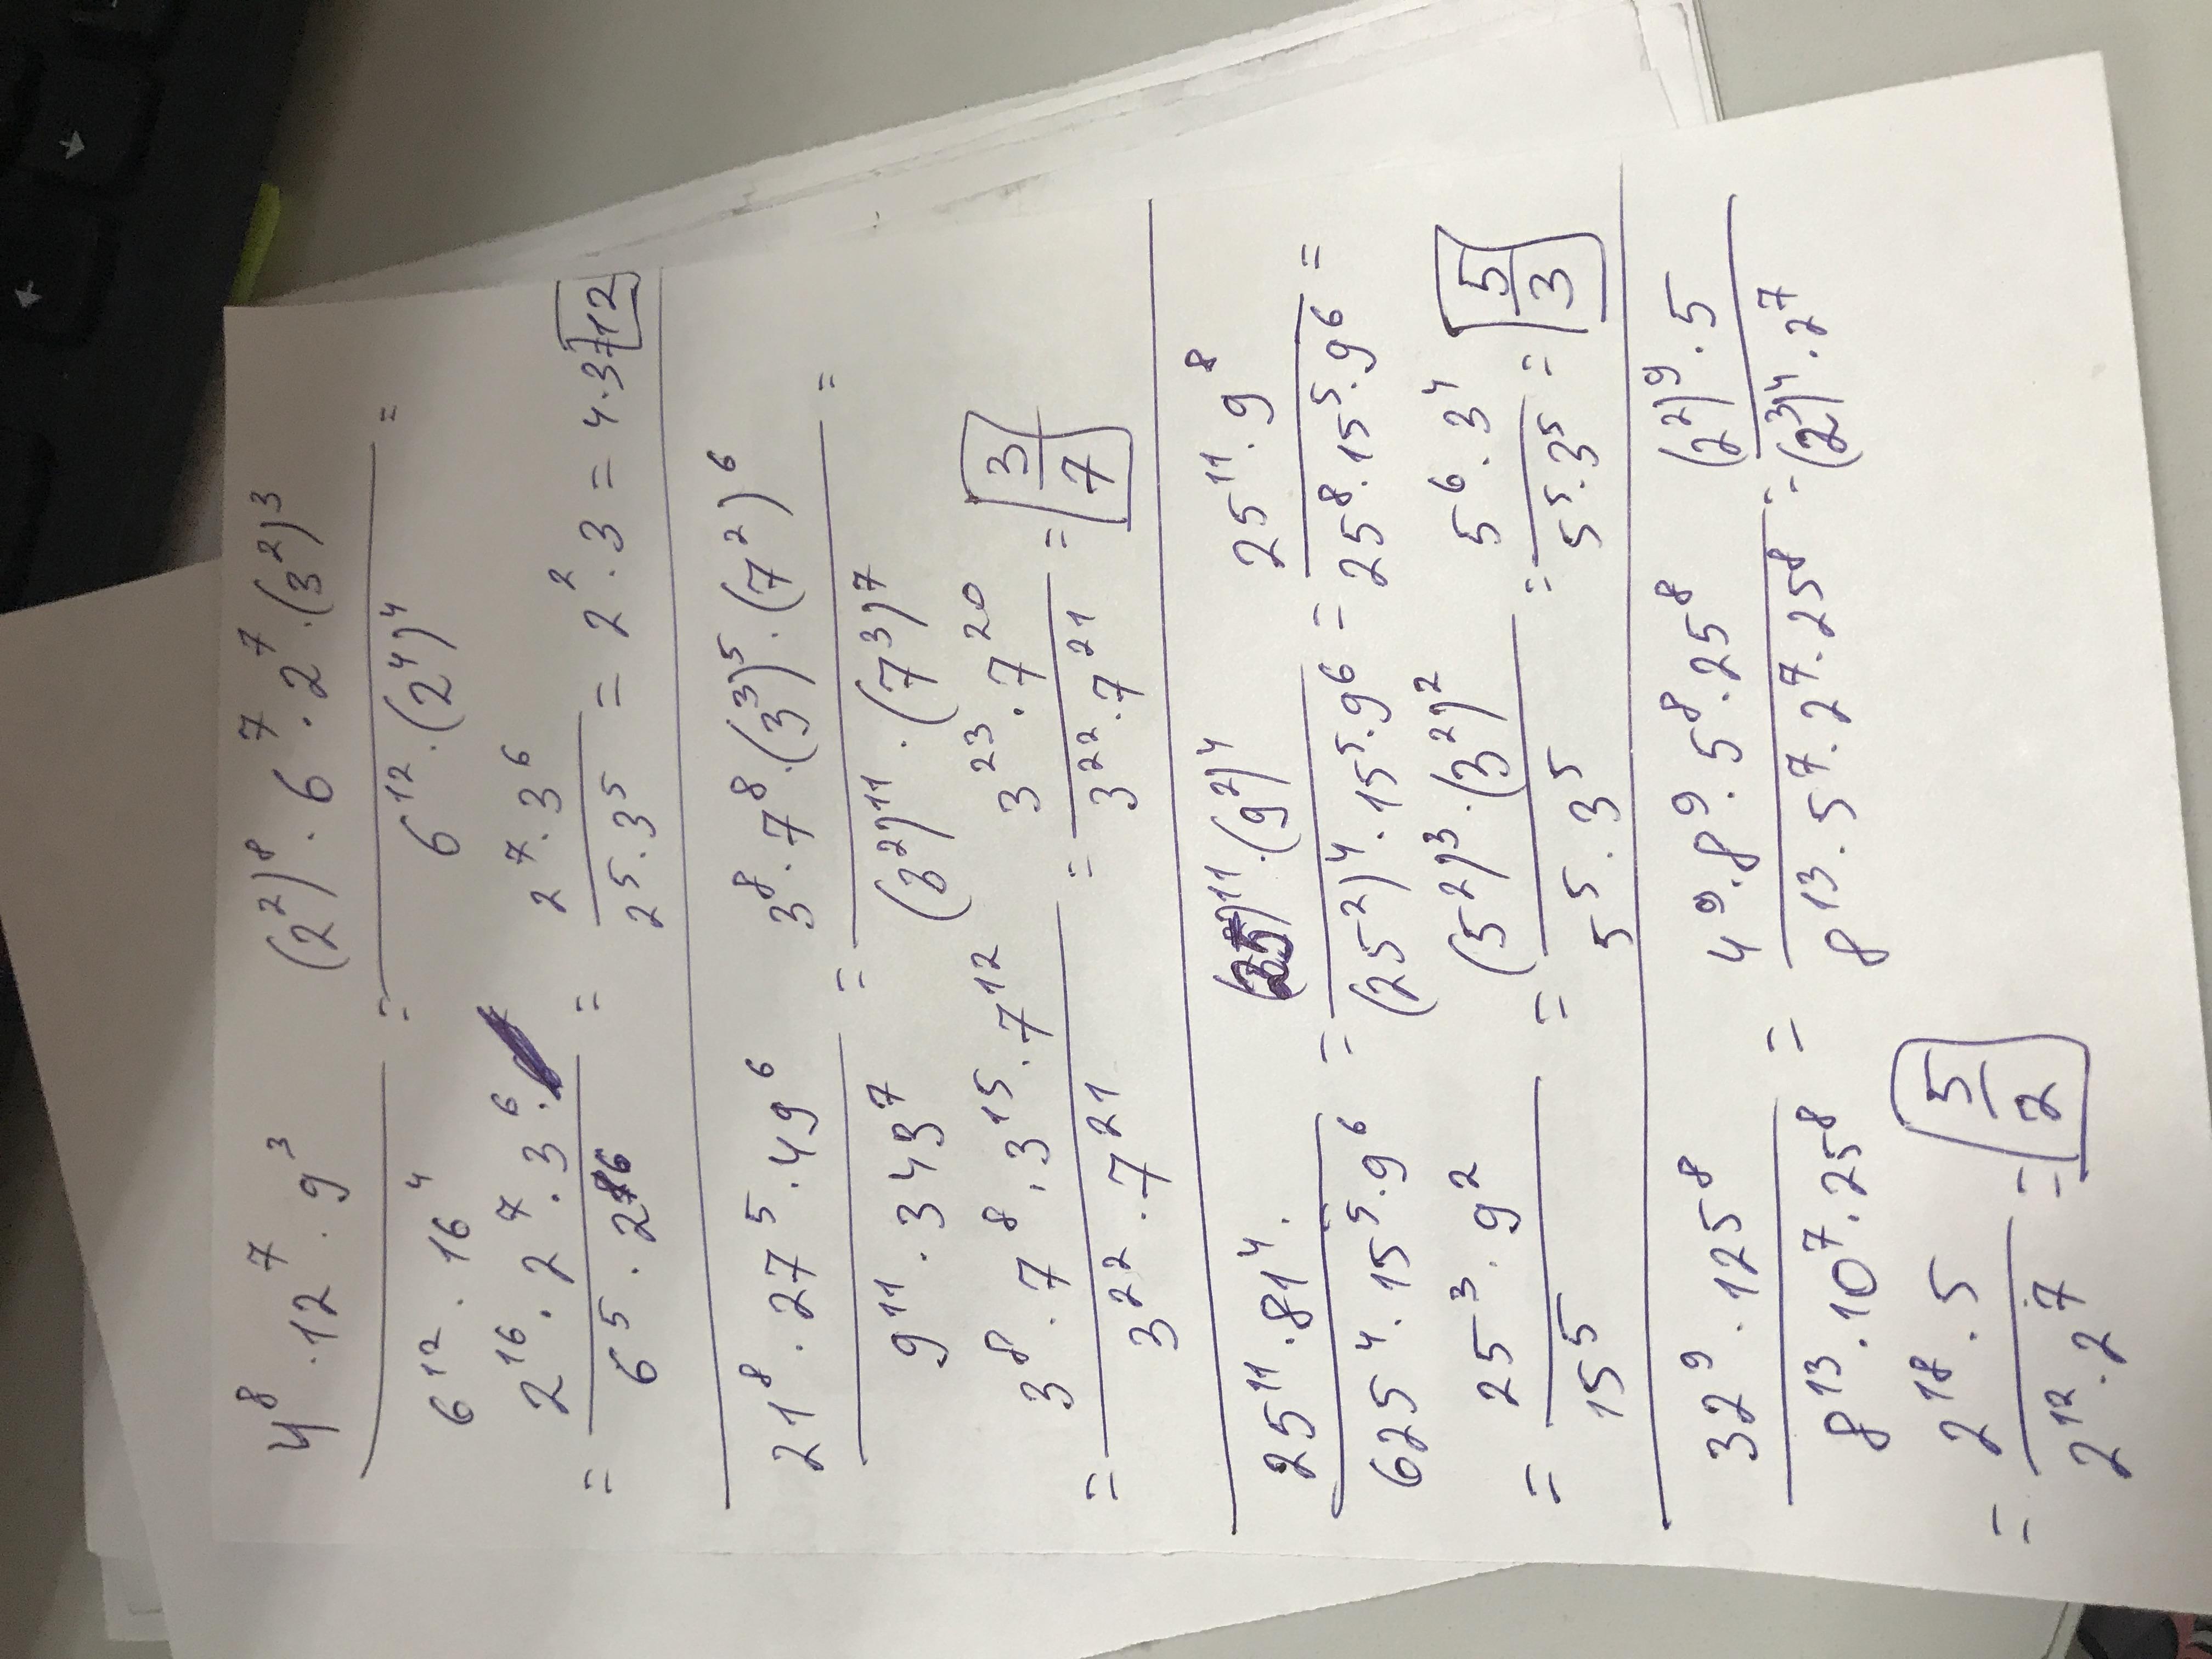 4⁸ · 12⁷ · 9³ / 6¹² · 16⁴ = (2²)⁸ · 6⁷ · 2⁷ · (3²)³ / 6¹² · (2⁴)⁴ =
= 2¹⁶ · 2⁷ · 3⁶ · / 6⁵ · 2¹⁶ = 2⁷ · 3⁶ / 2⁵ · 3⁵ = 2² · 3 = 4 · 3 = 12
21⁸ · 27⁵ · 49⁶ / 9¹¹ · 343⁷ = 3⁸ · 7⁸ · (3³)⁵ · (7²)⁶ / (3²)¹¹ · (7³)⁷ =
= 3⁸ · 7⁸ · 3¹⁵ · 7¹² / 3²² · 7²¹ = 3²³ · 7²⁰ / 3²² · 7²¹ = 3/7
25¹¹ · 81⁴ · / 625⁴ · 15⁵ · 9⁶ = (25)¹¹ · (9²)⁴ / (25²)⁴ · 15⁵ · 9⁶ = 25¹¹ · 9⁸ / 25⁸ · 15⁵ · 9⁶ =
= 25³ · 9² / 15⁵ = (5²)³ · (3²)² / 5⁵ · 3⁵ = 5⁶ · 3⁴ / 5⁵ · 3⁵ = 5/3
32⁹ · 125⁸ / 8¹³ · 10⁷ · 25⁸ = 4⁹ · 8⁹ · 5⁸ · 25⁸ / 8¹³ · 5⁷ · 2⁷ · 25⁸ = (2²)⁹ · 5 / (2³)⁴ · 2⁷
= 2¹⁸ · 5 / 2¹² · 2⁷ = 5/2